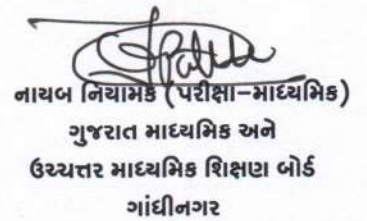 નાયબ નિયામક (પરીક્ષા–માધ્યમિક)
ગુજરાત માધ્યમિક અને
ઉચ્ચત્તર માધ્યમિક શિક્ષણ બોર્ડ
ગાંધીનગર